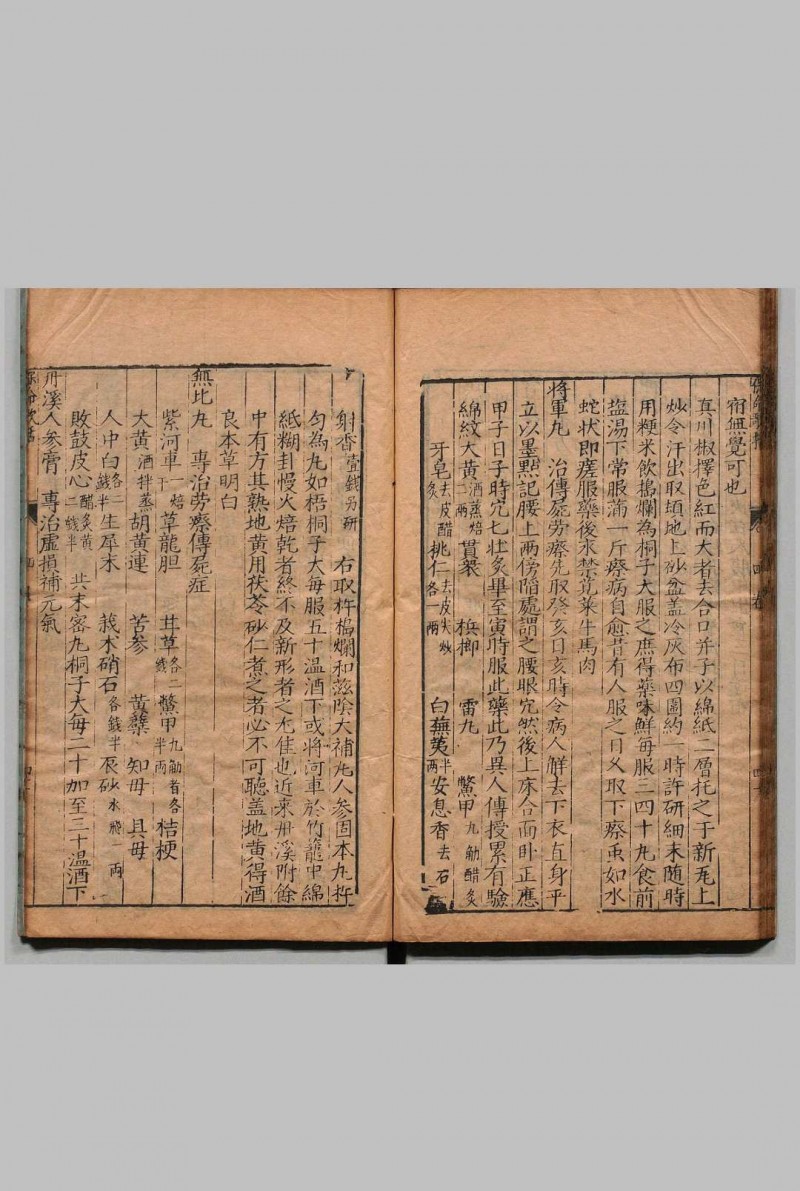 宿無覺可也
真川椒擇色紅而大者去合口并子以綿紙二層托之于新瓦上
炒令汗出取頃地上砂盆盖冷灰布四圍約一時許研細末随時
用粳米飲搗爛為桐子大服之庶得藥味鮮每服三四十丸食前
塩湯下常服滿一斤瘵病自愈昔有人服之日久取下瘵虫如水
蛇状即瘥服藥後永禁莧菜牛馬肉
將軍丸 治傳屍劳瘵先取癸亥日亥時令病人觧去下衣直身平
立以墨點記腰上两傍陷處謂之腰眼穴然後上床合面卧正應
甲子日子時穴七壮灸畢至寅時服此藥此乃異人傳授累有驗
綿紋大黄酒蒸焙二两 貫衆 梹榔 雷丸 鱉甲九勧醋炙
牙皂去皮醋炙 桃仁去皮尖炒各一两 白蕪荑半两 安息香去石
射香壹錢另研 右取杵搗爛和滋陰大補丸人参固本丸杵
匀為丸如梧桐子大每服五十温酒下或將河車於竹籠中綿
紙糊卦慢火焙乾者終不及新形者之尤佳也近来丹溪附餘
中有方其熟地黄用茯苓砂仁煮之者必不可聽盖地黄得酒
良本草明白
無比丸 專治劳瘵傳屍症
紫河車一焙干 草龍胆 甘草各二錢 鱉甲九勧者各半两 桔梗
大黄酒拌蒸 胡黄連 苦参 黄蘗 知母 具母
人中白各二錢半 生犀末 莪术 硝石各錢半 辰砂水飛一两
敗鼓皮心醋炙黄二錢半 共末密丸桐子大每二十加至三十温酒下
丹溪人参膏 專治虛損補元氣